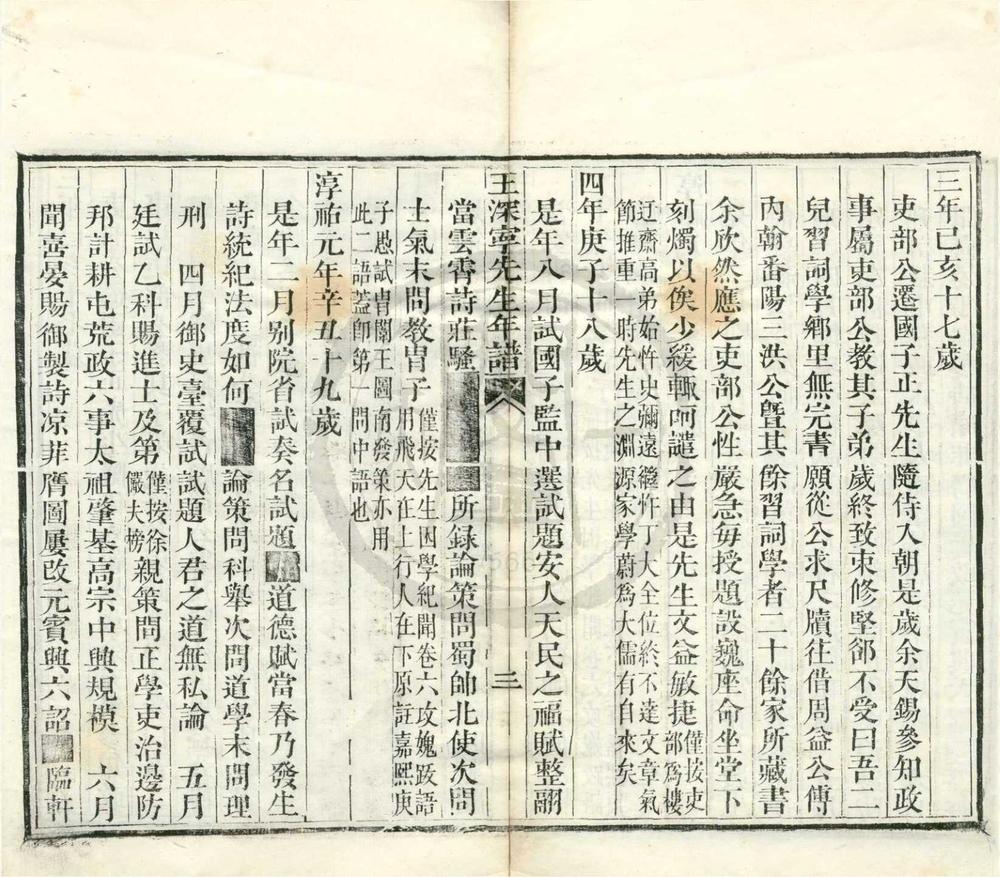 三年己亥十七歲
吏部公遷國子正先生隨侍入朝是歲余天錫參知政
事屬吏部公教其子弟歲終致束修堅卻不受曰吾二
兒習詞學鄉里無完書願從公求尺牘往借周益公傅
內翰番陽三洪公暨其餘習詞學者二十餘家所藏書
余欣然應之吏部公性嚴急每授題設巍座命坐堂下
刻燭以俟少緩輒呵譴之由是先生文益敏捷僅按吏部爲樓
迂齋高弟始忤史彌遠繼忤丁大全位終不達文章氣
節推重一時先生之淵源家學蔚爲大儒有自來矣
四年庚子十八歲
是年八月試國子監中選試題安人天民之福賦整翮
王深寧先生年譜 三
當雲霄詩莊騷所録論策問蜀帥北使次問
士氣末問教冑子僅按先生困學紀聞卷六攻媿跋語
用飛天在上行人在下原註嘉熙庚
子愚試冑闈王圖南發策亦用
此二語蓋卽第一問中語也
淳祐元年辛丑十九歲
是年二月別院省試奏名試題道德賦當春乃發生
詩統紀法度如何論策問科舉次問道學末問理
刑 四月御史臺覆試試題人君之道無私論 五月
廷試乙科賜進士及第僅按徐儼夫榜親策問正學吏治邊防
邦計耕屯荒政六事太祖肇基高宗中興規模 六月
聞喜宴賜御製詩涼菲膺圖屢改元賓興六詔臨軒